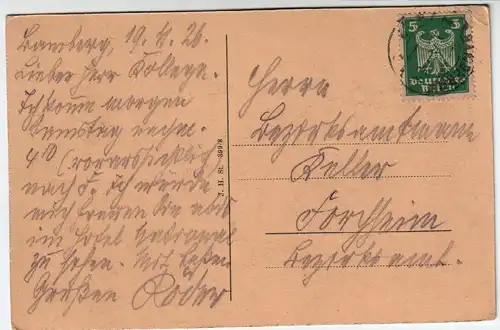 Bamberg, 19. 11. 26.
Lieber Herr Kollege.
Ich komme morgen
Samstag nachm.
4 10 (voraussichtlich)
nach F. Ich würde
mich freuen Sie
im Hotel
zu sehen. Mit besten
Grüßen Röder
J. H. St. 899/8
5 5
Deutsches
Reich
Herrn
Bezirksamtmann
Keller
Forchheim
Bezirksamt.